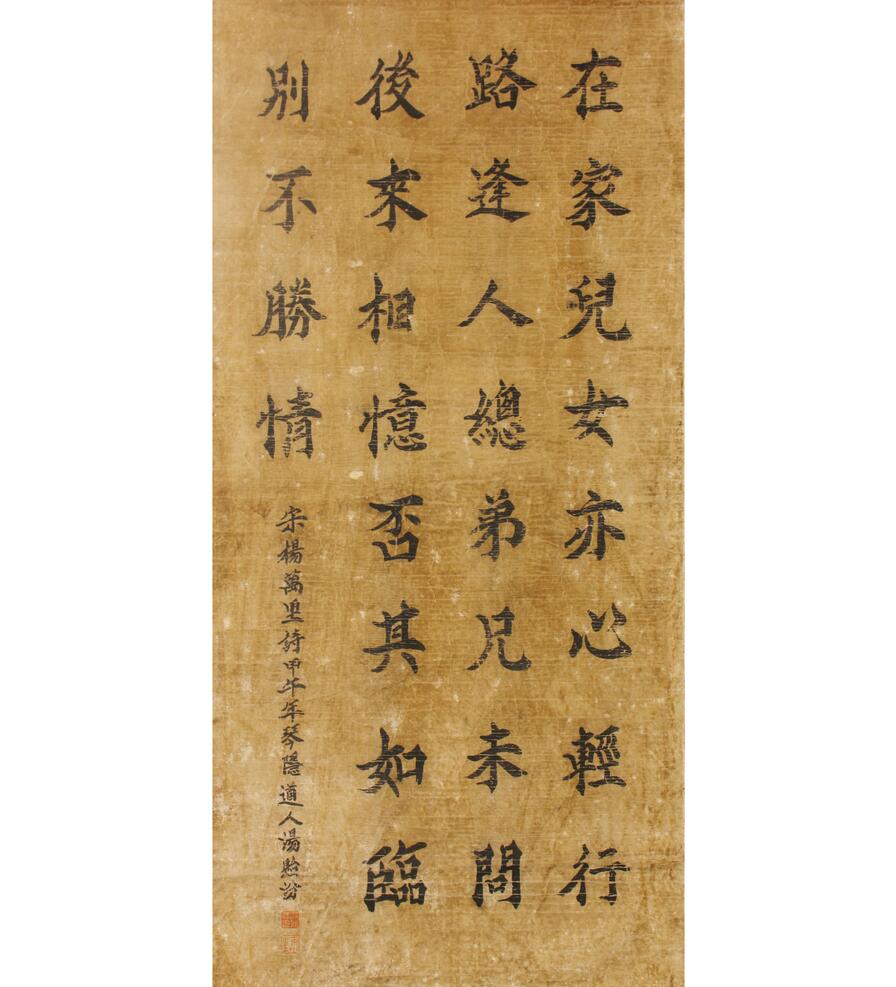 在家兒女亦心輕行
路逢人總弟兄未問
後來相憶否其如臨
別不勝情
宋楊萬里詩甲午年琴隱道人湯貽汾